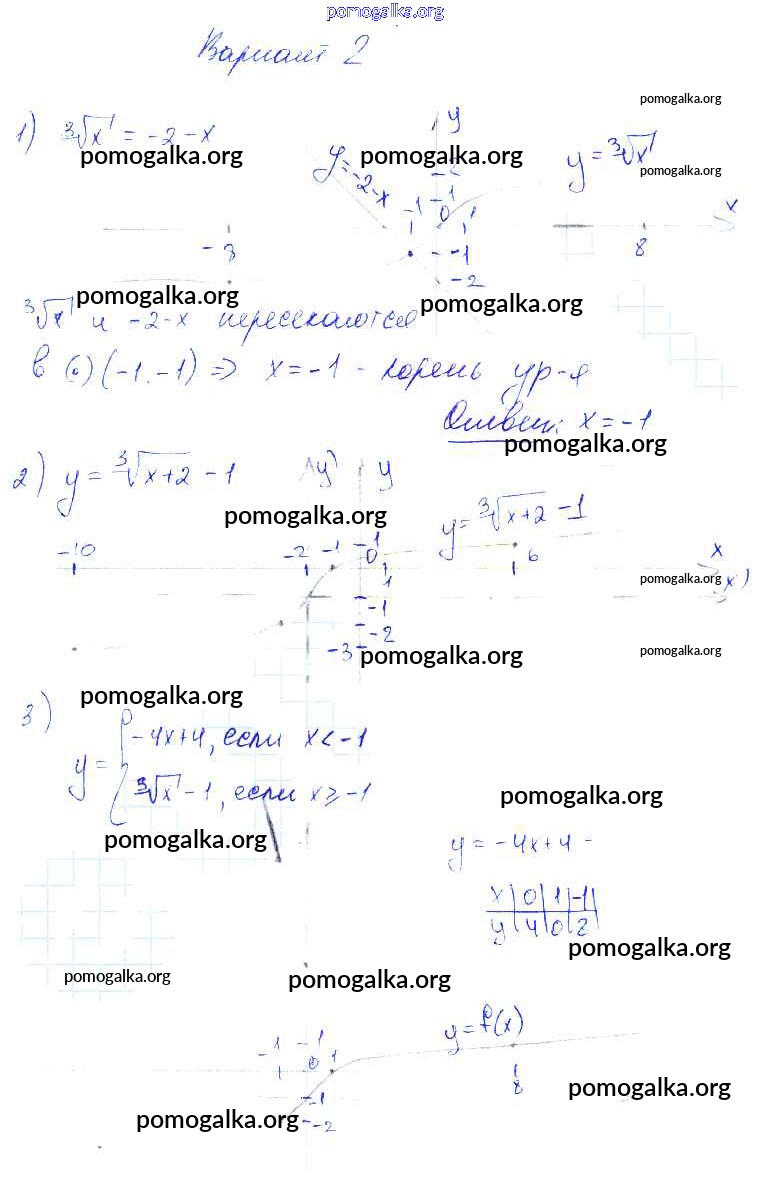 pomogalka.org
Вариант 2
pomogalka.org
1) ∛x = -2 - x
y
pomogalka.org
pomogalka.org
y = -2 - x
-2
y = ∛x
pomogalka.org
-1
-1
0
1
x
-8
-1
8
-2
pomogalka.org
pomogalka.org
∛x и -2-x пересекаются
в (•) (-1; -1) => x = -1 - корень ур-я
Ответ: x = -1
pomogalka.org
2) y = ∛x+2 - 1
y)
y
pomogalka.org
y = ∛x+2 - 1
-10
-2
-1
-1
0
1
6
x
pomogalka.org
x)
-1
-2
-3
pomogalka.org
pomogalka.org
pomogalka.org
3)
y = { -4x+4, если x < -1
∛x - 1, если x ≥ -1
pomogalka.org
pomogalka.org
y = -4x+4 -
x | 0 | 1 | -1
y | 4 | 0 | 2
pomogalka.org
pomogalka.org
pomogalka.org
y = f(x)
-1
-1
0
1
8
pomogalka.org
-1
pomogalka.org
-2